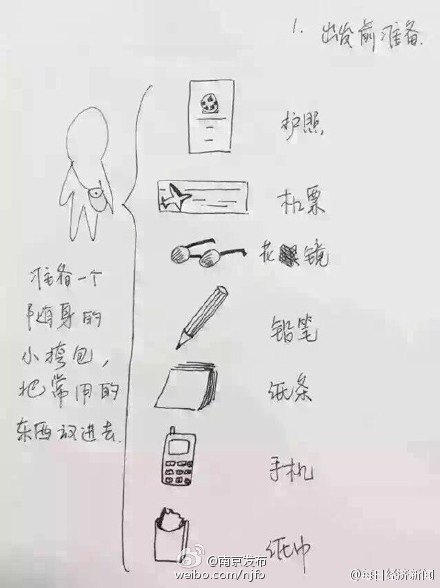 1. 出发前准备.
护照
机票
花镜
铅笔
纸条
手机
纸巾
准备一个
随身的
小挎包,
把常用的
东西放进去.
@南京发布
weibo.com/njfb
@每日经济新闻